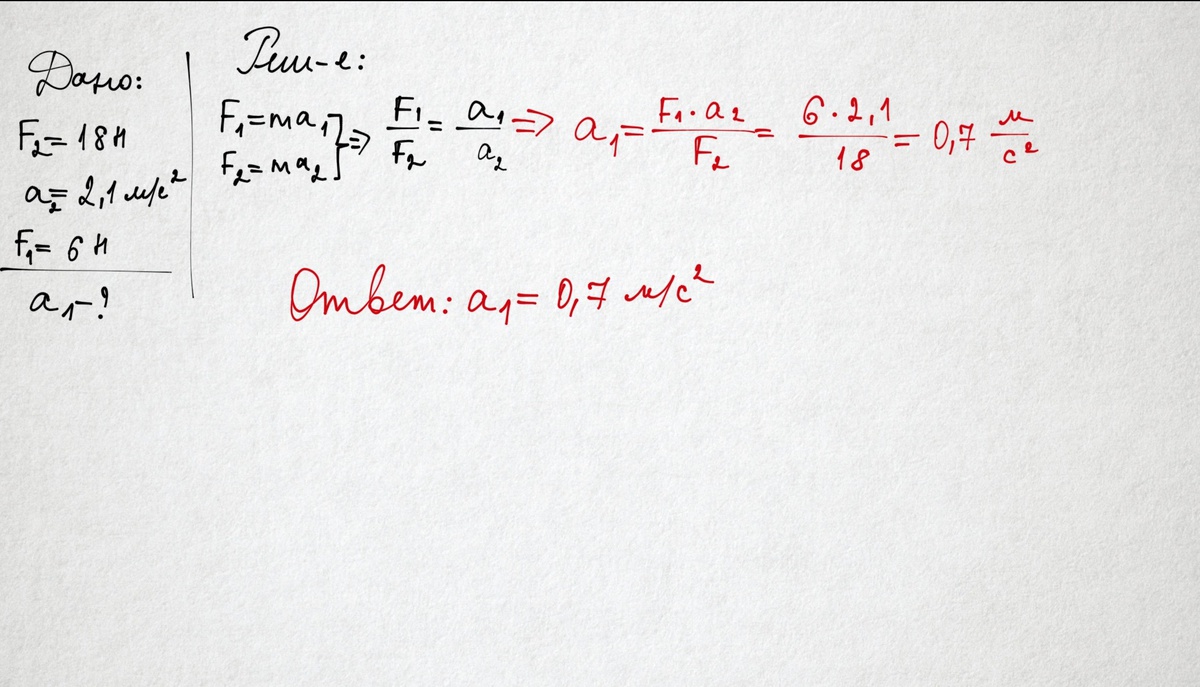 Дано:
F₂ = 18 Н
a₂ = 2,1 м/с²
F₁ = 6 Н
a₁ - ?
Реш-е:
F₁ = ma₁
F₂ = ma₂ ] ⇒ F₁/F₂ = a₁/a₂ ⇒ a₁ = F₁·a₂/F₂ = 6·2,1/18 = 0,7 м/с²
Ответ: a₁ = 0,7 м/с²